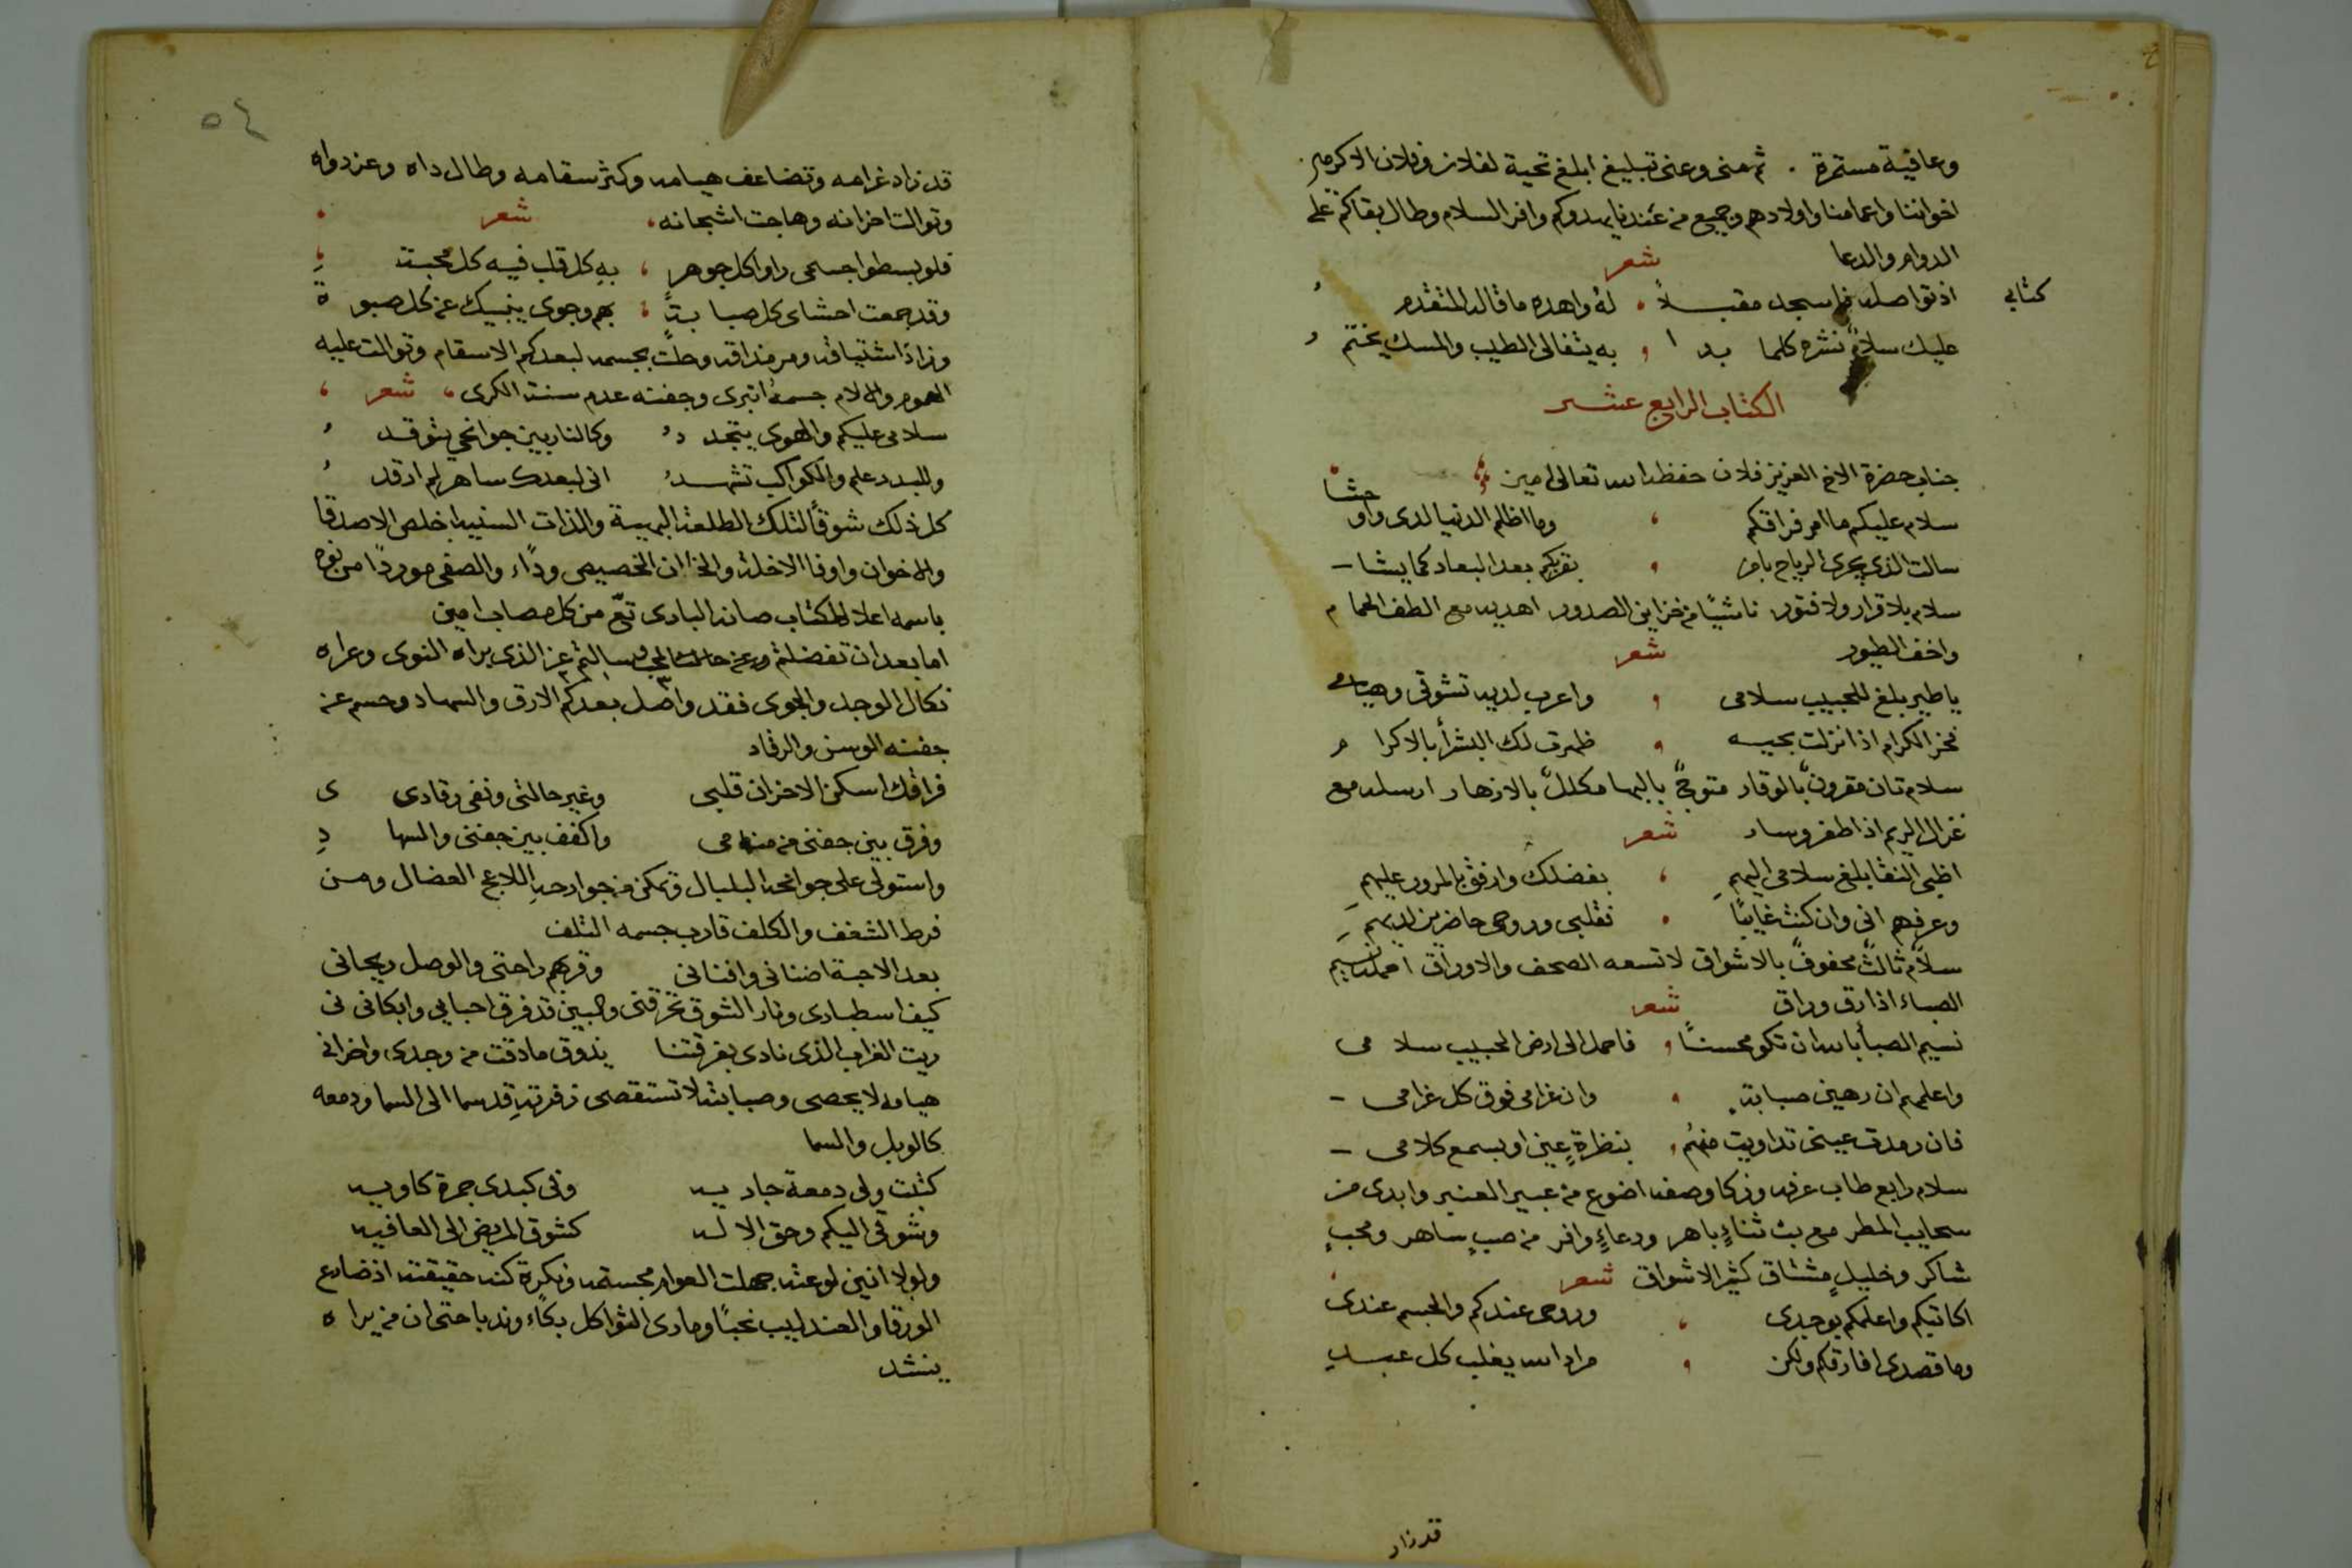 وعافية مستمرة . ثم منى وعنى تبليغ ابلغ تحية لفلان وفلان الاكرمين
اخواننا واعمامنا واولادهم وجميع من عندنا يهدوكم وافر السلام وطال بقاكم على
الدوام والدعا شعر
كتابي اذ تواصله فاسجد مقبلاً له واهده ما قاله المتقدم
عليك سلام نشره كلما بدا به يتغالى الطيب والمسك يختم
الكتاب الرابع عشر
جناب حضرة الاخ العزيز فلان حفظه الله تعالى امين
سلام عليكم ما امر فراقكم وما اظلم الدنيا لدى واوحشا
سالت الذي يجرى الرياح بامره بقربكم بعد البعاد كما يشا
سلام بلا قرار ولا فتور ناشئًا من خزاين الصدور اهديه مع الطف الحمام
واخف الطيور شعر
ياطير بلغ للحبيب سلامى واعرب لديه تشوقى وهيامى
فخر الكرام اذا نزلت بحيه ظهرت لك البشرأ بالاكرام
سلام ثان مقرون بالوقار متوج بالبها مكلل بالازهار ارسله مع
غزال الريم اذا طفر وسار شعر
اظبي النقا بلغ سلامى اليهم بفضلك وارفق بالمرور عليهم
وعرفهم انى وان كنت غايبًا فقلبى وروحى حاضرين لديهم
سلام ثالث محفوف بالاشواق لا تسعه الصحف والاوراق احمله نسيم
الصباء اذا رق وراق شعر
نسيم الصبأ بالله ان تكو محسنًا فاحمل الى ارض الحبيب سلامى
واعلمهم ان رهين صبابة وان غرامى فوق كل غرامى
فان رمدت عينى تداويت منهم بنظرة عين او بسمع كلامى
سلام رابع طاب عرفه وزكا وصفه اضوع من عبير العنبر وابدى من
سحايب المطر مع بث ثناءٍ باهر ودعاءٍ وافر من صب ساهر ومحبٍ
شاكر وخليل مشتاق كثير الاشواق شعر
اكاتبكم واعلمكم بوجدى وروحى عندكم والجسم عندى
وما قصدى افارقكم ولكن مراد الله يغلب كل عبد
قد زاد
٥٤
قد زاد غرامه وتضاعف هيامه وكثر سقامه وطال داه وعز دواه
وتوالت احزانه وهاجت اشجانه شعر
فلو بسطوا جسمى راوا كل جوهر به كل قلب فيه كل محبة
وقد جمعت احشاى كل صبابة بهم وجوى ينبيك عن كل صبوة
وزاد اشتياقه ومر مذاقه وحلت بجسمه لبعدكم الاسقام وتوالت عليه
الهموم والالام جسمه انبرى وجفنه عدم سنت الكرى شعر
سلامى عليكم والهوى يتجدد وكالنار بين جوانحي يتوقد
وللبدر علم والكواكب تشهد انى لبعدك ساهر لم ارقد
كل ذلك شوقًا لتلك الطلعة البهية والذات السنيه اخلص الاصدقا
والاخوان واوفا الاخلة والخصيص ودًاء والصفى موردًا من نوه
باسمه اعلا الكتاب صانه البادى تعّ من كل مصاب امين
اما بعد ان تفضلتم وعن حالت المحب وسالتم عن الذى براه النوى وعراه
نكال الوجد والجوى فقد واصل بعدكم الارق والسهاد وحسم عنه
جفنه الوسن والرقاد
فراقك اسكن الاحزان قلبى وغير حالتى ونفى رقادى
وفرق بين جفنى من منامى واكفف بين جفنى والسهاد
واستولى على جوانحه البلبال وتمكن من جوارحه اللاعج العضال ومن
فرط الشغف والكلف قارب جسمه التلف
بعد الاحبة اضنانى وافنانى وقربهم راحتى والوصل ريحانى
كيف اسطبارى ونار الشوق تحرقنى والبين قد فرق احبابي وابكانى
ريت الغراب الذى نادى بفرقتنا يذوق ما ذقت من وجدى واحزانى
هيامه لا يحصى وصبابته لا تستقصى زفرته قد سما الى السما ودمعه
كالوبل والسما
كتبت ولى دمعة جاريه وفى كبدى جمرة كاويه
وشوقى اليكم وحق الاله كشوق المريض الى العافيه
ولولا انين لوعته جهلت العوام مجسته ونكرة كنه حقيقته اذ ضارع
الورقا والعندليب نحبًا وحادى الثواكل بكاء وندبا حتى ان من يراه
ينشد